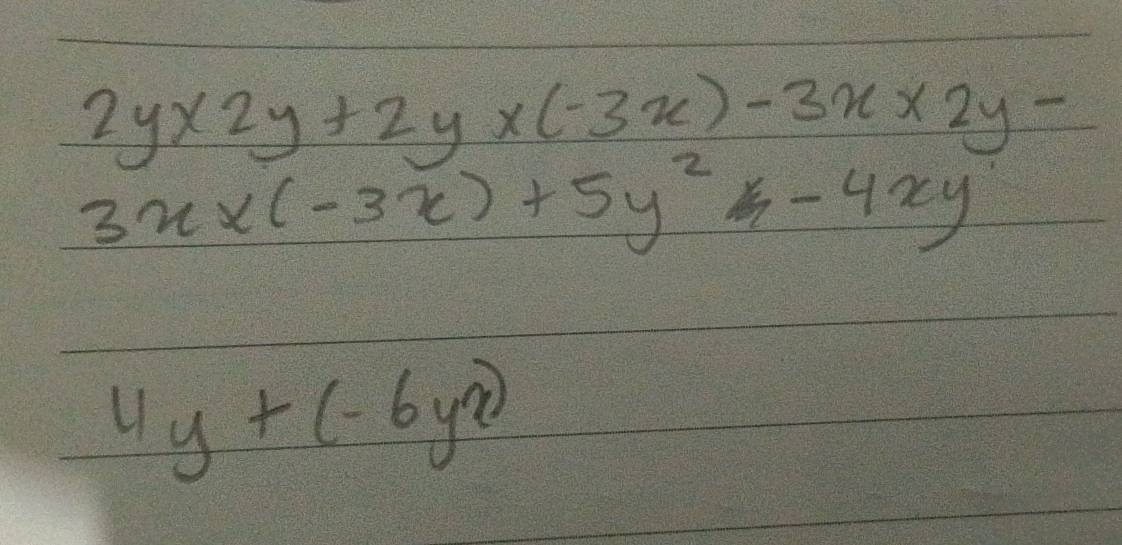 2y×2y+2y×(-3x)-3x×2y-
3x×(-3x)+5y² -4xy
4y+(-6yx)